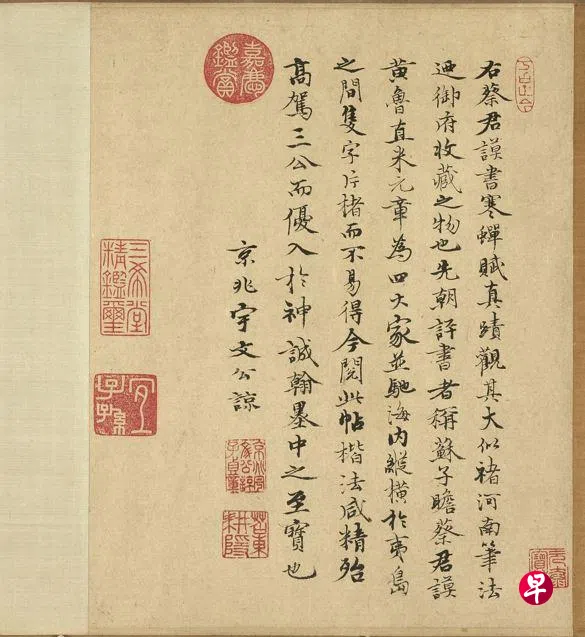 右蔡君謨書寒蟬賦真蹟觀其大似褚河南筆法
迺御府收藏之物也先朝評書者稱蘇子瞻蔡君謨
黃魯直米元章為四大家並馳海內縱橫於夷島
之間隻字片楮而不易得今閱此帖楷法咸精殆
高駕三公而優入於神誠翰墨中之至寶也
京兆宇文公諒
嘉慶
鑑賞
三希堂
精鑑璽
宜
子孫
早